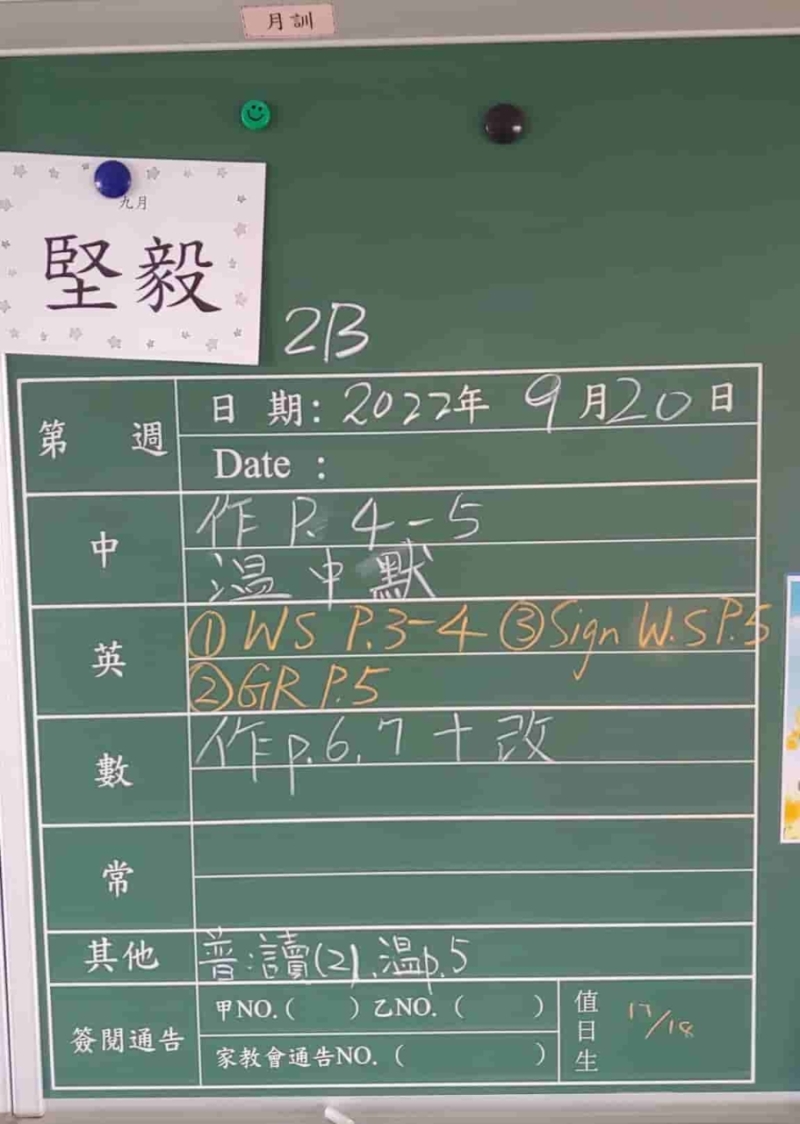 月訓
九月
堅毅
2B
第 週
日 期： 2022年 9月20日
Date ：
中
作 P. 4-5
溫 中 默
英
① WS P.3-4 ③Sign W.S P.5
② GR P.5
數
作 p.6,7 + 改
常
其他
普:讀(2),溫p.5
簽閱通告
甲NO.( ) 乙NO. ( )
家教會通告NO. ( )
值日生
17/18